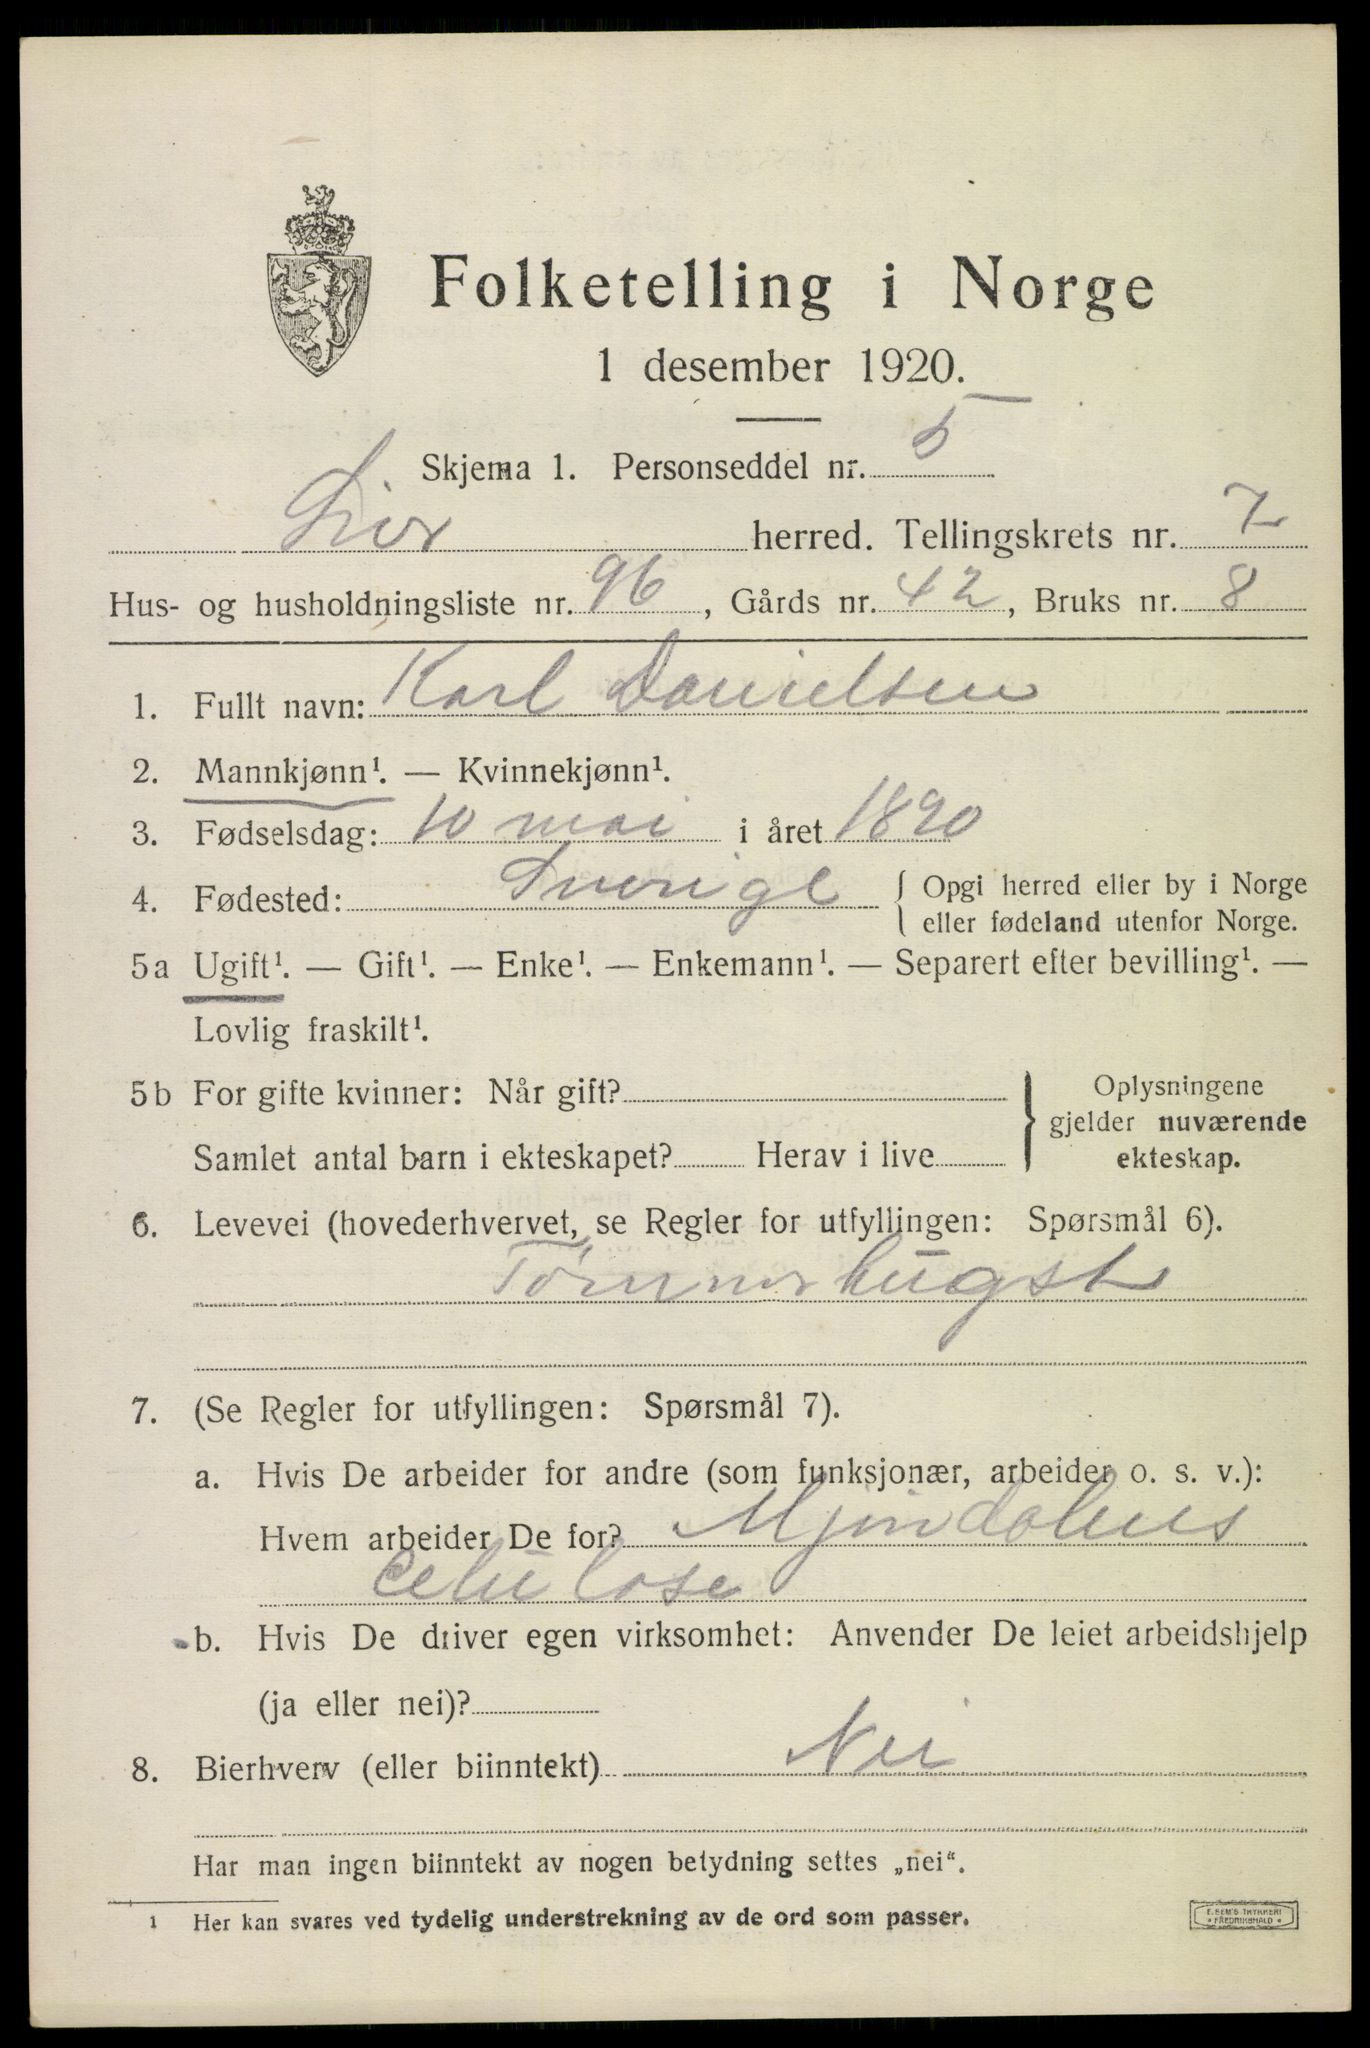 Folketelling i Norge
1 desember 1920.
Skjema 1. Personseddel nr. 5
Lier herred. Tellingskrets nr. 7
Hus- og husholdningsliste nr. 96, Gårds nr. 42, Bruks nr. 8
1. Fullt navn: Karl Danielsen
2. Mannkjønn¹. — Kvinnekjønn¹.
3. Fødselsdag: 10 mai i året 1890
4. Fødested: Sverige { Opgi herred eller by i Norge
eller fødeland utenfor Norge.
5a Ugift¹. — Gift¹. — Enke¹. — Enkemann¹. — Separert efter bevilling¹. —
Lovlig fraskilt¹.
5b For gifte kvinner: Når gift? } Oplysningene
gjelder nuværende
Samlet antal barn i ekteskapet? Herav i live ekteskap.
6. Levevei (hovederhvervet, se Regler for utfyllingen: Spørsmål 6).
Tømmerhugst
7. (Se Regler for utfyllingen: Spørsmål 7).
a. Hvis De arbeider for andre (som funksjonær, arbeider o. s. v.):
Hvem arbeider De for? Mjøndalens
Celulose
b. Hvis De driver egen virksomhet: Anvender De leiet arbeidshjelp
(ja eller nei)?
8. Bierhverv (eller biinntekt) Nei
Har man ingen biinntekt av nogen betydning settes „nei“.
¹ Her kan svares ved tydelig understrekning av de ord som passer.
E. SEM'S TRYKKERI
FREDRIKSHALD